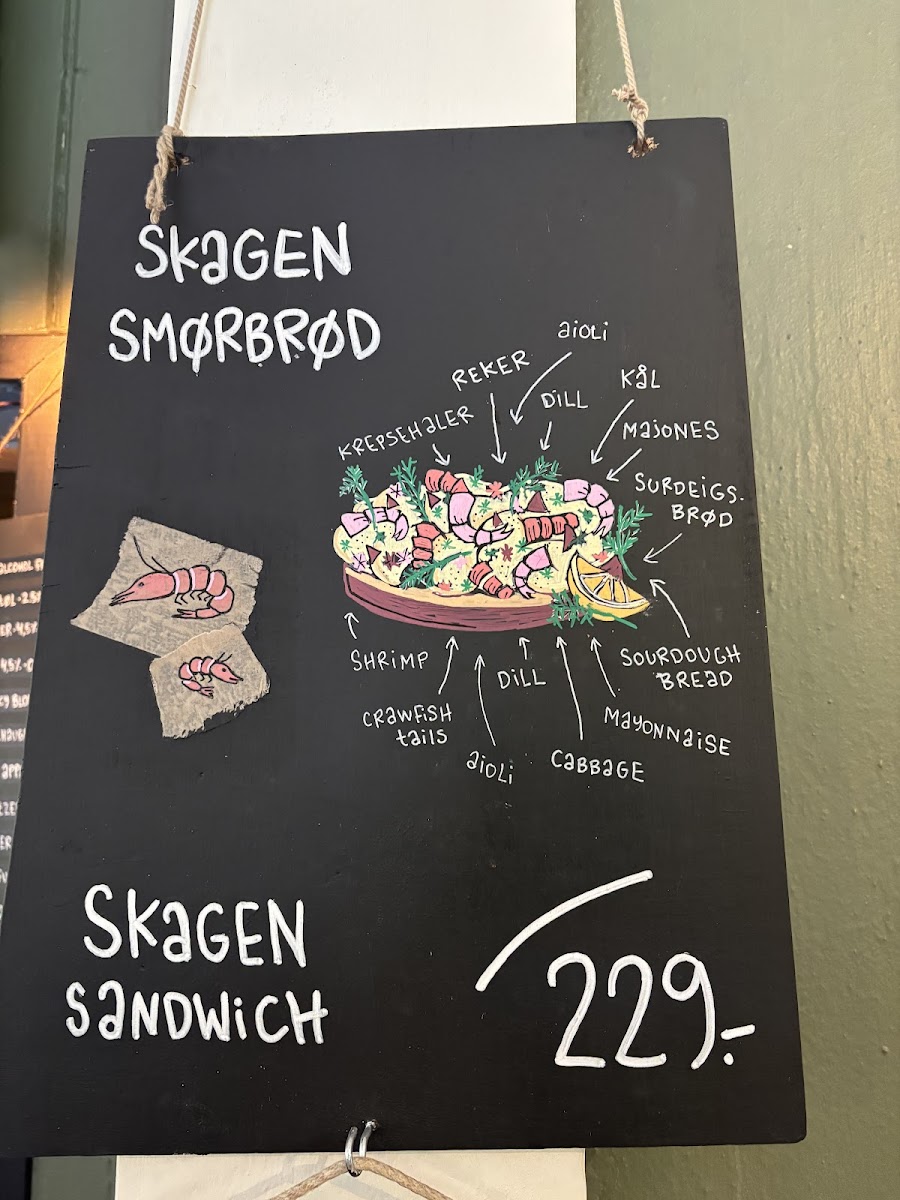 SKAGEN
SMØRBRØD
aioli
REKER
KÅL
DiLL
KREPSEHALER
MAJONES
SURDEIGS-
BRØD
SHRIMP
DiLL
SOURDOUGH
BREAD
CRAWFISH
tails
MAYONNAiSE
aioli
CABBAGE
SKAGEN
SANDWiCH
229.-